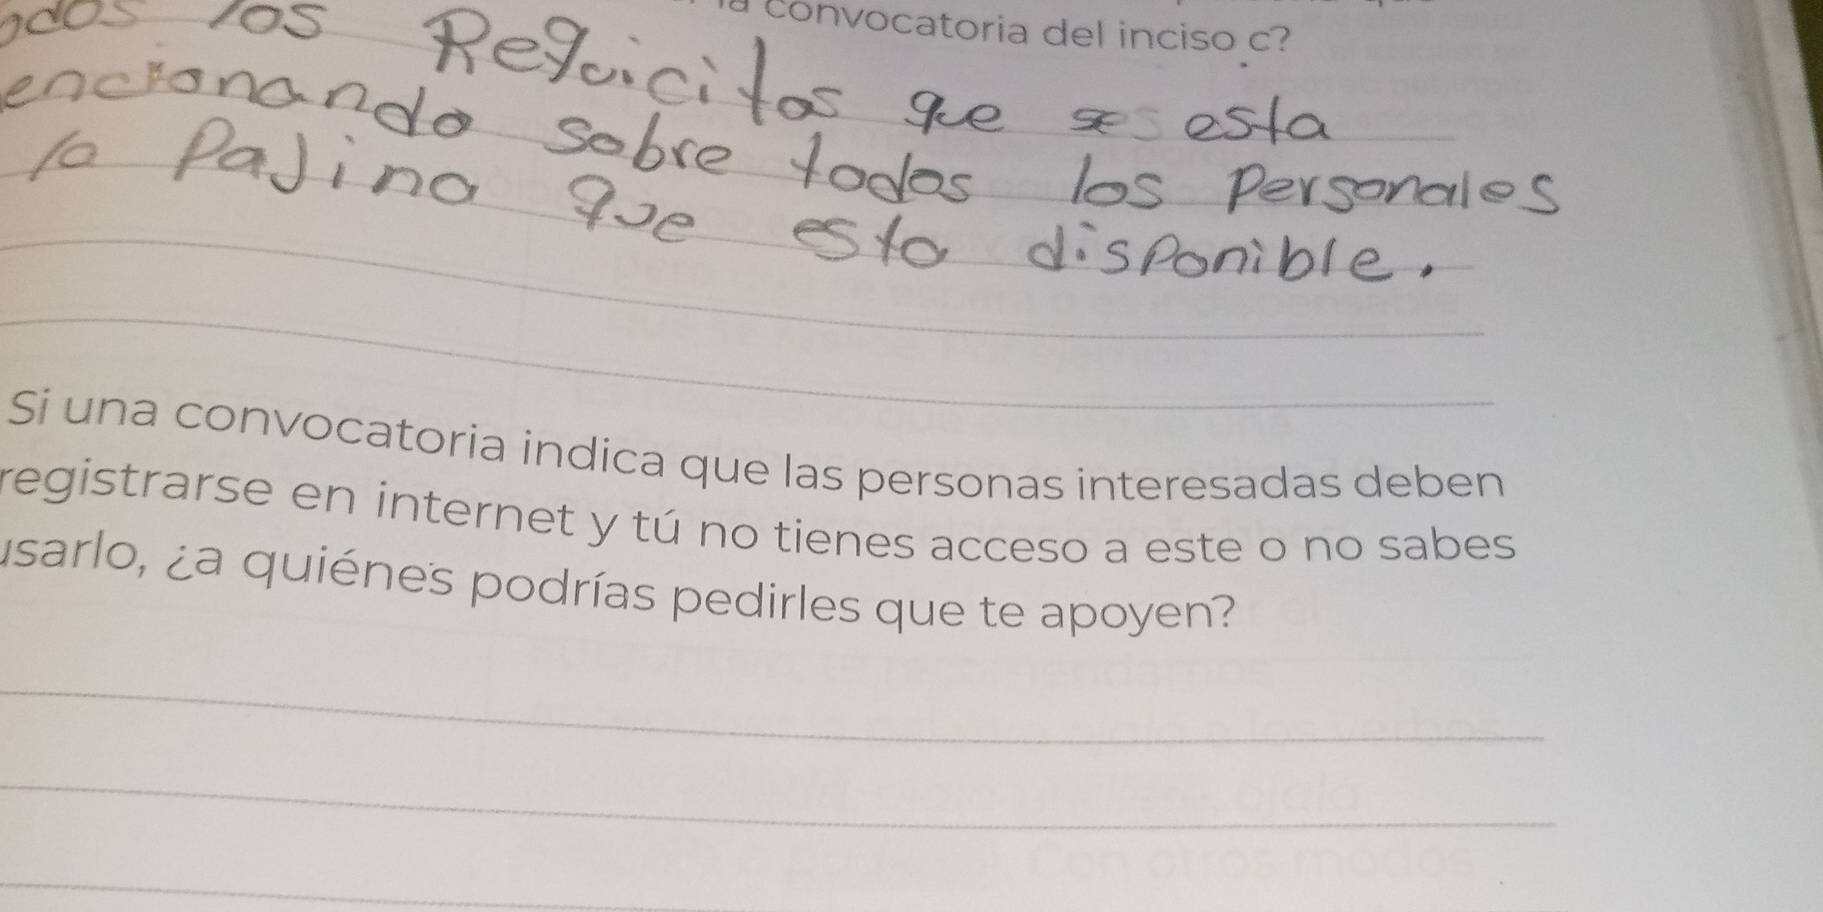 convocatoria del inciso c?
los Reguicitos que es esta
sobre todos los Personales
la Pajina que esta disponible.
Si una convocatoria indica que las personas interesadas deben
registrarse en internet y tú no tienes acceso a este o no sabes
usarlo, ¿a quiénes podrías pedirles que te apoyen?